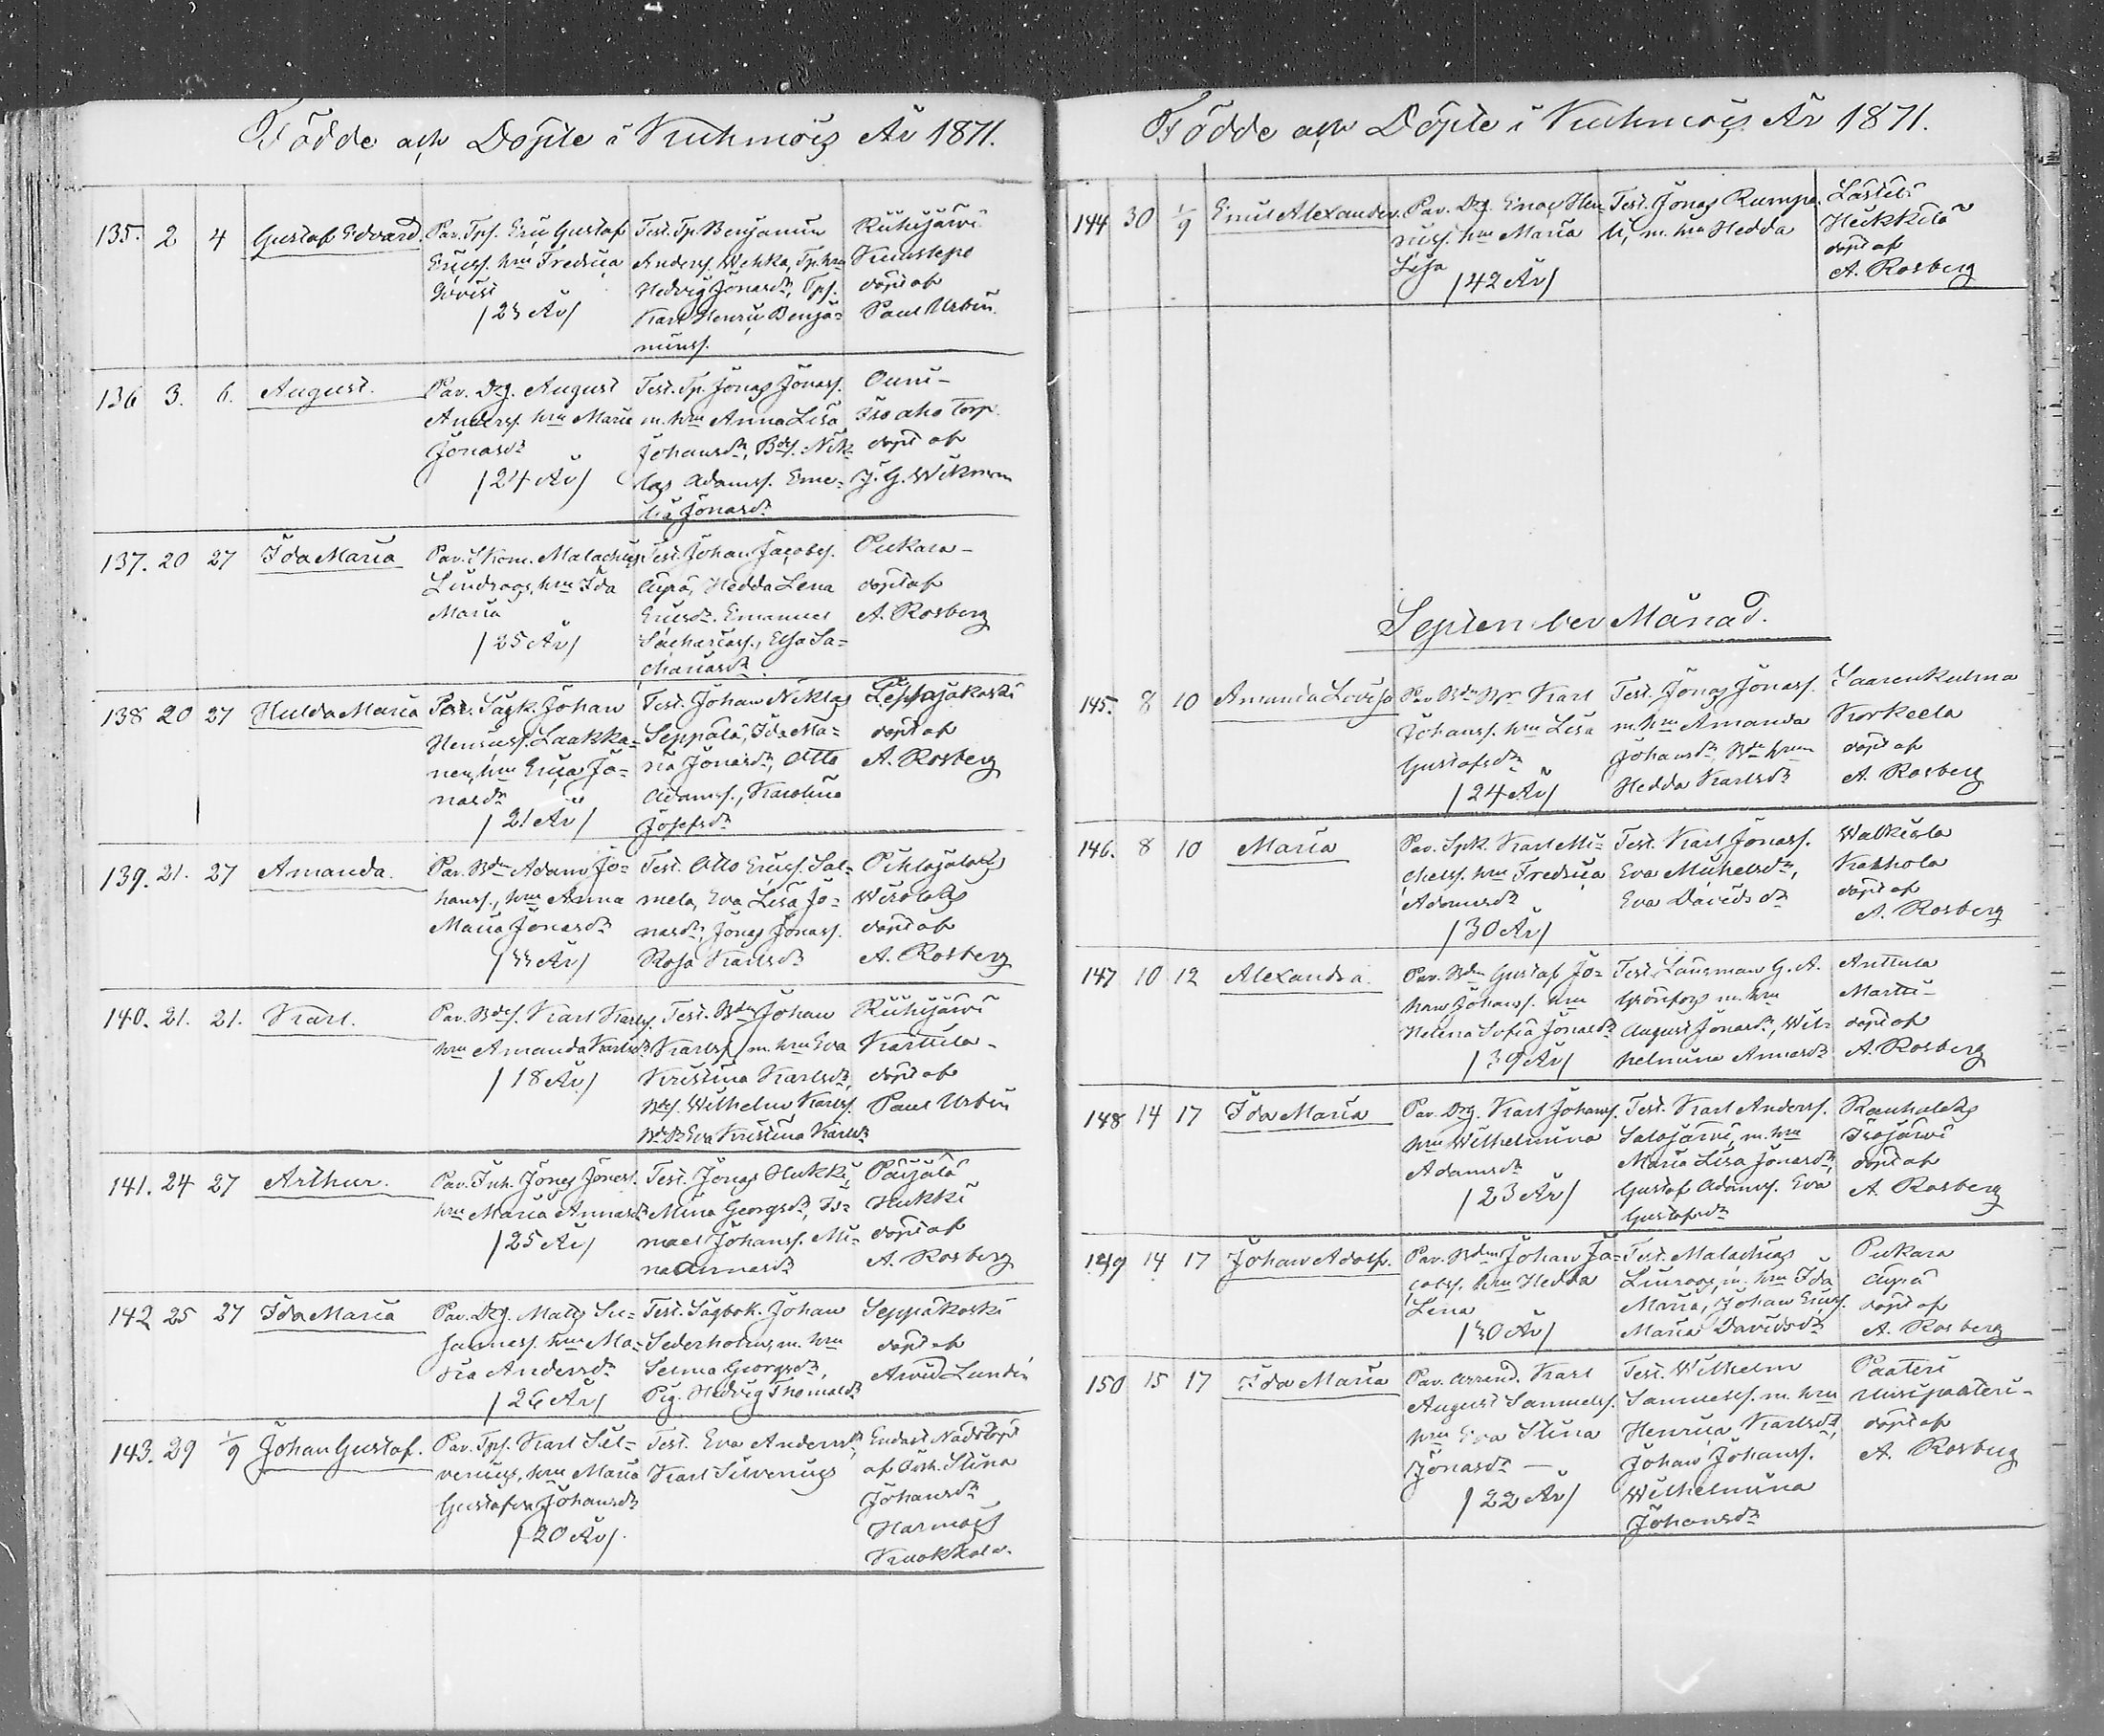 Födde och Döpte i Kuhmois År 1871.
135. 2 4 Gustaf Edvard.
Par. Tps. Eric Gustaf
Ericss. hm Fredrica
Lovisa
/23 År/
Test. Tp. Benjamin
Anderss. Wehka, Tp. hm
Hedvig Jonasdr, Tps.
Karl Henric Benja-
minss.
Riihijärvi
döpt af
Paul Urbin.
136 3. 6. August.
Par. Drg. August
Anderss. hm Maria
Jonasdr
/24 År/
Test. Tp. Jonas Jonass.
m. hm Anna Lisa
Johansdr, Bds. Nik-
las Adamss. Eme-
lia Jonasdr
Isoaho Torp.
döpt af
J. G. Wikman
137. 20 27 Ida Maria
Par. Skom. Malachias
hm Ida
Maria
/25 År/
Test. Johan Jacobss.
Äyrä, Hedda Lena
Ericsdr. Emanuel
Sachariass., Elsa Sa-
chariasdr.
Pukara -
döpt af
A. Rosberg
138 20 27 Hulda Maria
Par. Sågk. Johan
Henricss. Laakka-
nen, hm Erica Jo-
nasdr
/21 År/
Test. Johan Niklas
Seppälä, Ida Ma-
ria Jonasdr, Otto
Adamss., Karolina
Josefsdr
döpt af
A. Rosberg
139. 21. 27 Amanda.
Par. Bdn Adam Jo-
hanss., hm Anna
Maria Jonasdr
/33 År/
Test. Otto Ericss. Sal-
mela, Eva Lisa Jo-
nasdr, Jonas Jonass.
Rosa Karlsdr
Pihlajalaks
Wirolaks
döpt af
A. Rosberg
140. 21. 21. Karl.
Par. Bds. Karl Karlss.
hm Amanda Karlsdr
/18 År/
Test. Bdn Johan
Karlss. m. hm Eva
Kristina Karlsdr,
Bds. Wilhelm Karlss.
Bd. Dr Eva Kristina Karlsdr
Riihijärvi
Karttula -
döpt af
Paul Urbin
141. 24 27 Arthur.
Par. Inh. Jonas Jonass.
hm Maria Annasdr
/25 År/
Test. Jonas Hukki,
Mina Georgsdr, Is-
mael Johanss. Mi-
na Annasdr
Päijälä
Hukki
döpt af
A. Rosberg
142 25 27 Ida Maria
Par. Drg. Matts Su-
hm Ma-
ria Andersdr
/26 År/
Test. Sågbok. Johan
Sederholm, m. hm
Selma Georgsdr,
Pig. Hedvig Thomasdr
Seppäkoski
döpt af
Arvid Lundén
143. 29 1/9 Johan Gustaf.
Par. Tps. Karl Sil-
verius, hm Maria
Gustafva Johansdr
/20 År/.
Test. Eva Andersdr,
Karl Silverius
Endast Nöddöpt
af Stina
Johansdr
Harmois
Kuokkala.
Födde och Döpte i Kuhmois År 1871.
144 30 1/9 Emil Alexander.
Par. Drg. Enoc Hen-
ricss. hm Maria
Lisa
/42 År/
Test. Jonas Rumpa-
li, m. hm Hedda
Lästilä
Heikkilä
döpt af
A. Rosberg
September Månad.
145. 8 10 Amanda Lovisa
Par. Bdn Karl
Johanss. hm Lisa
Gustafsdr
/24 År/
Test. Jonas Jonass.
m. hm Amanda
Johansdr, Bde hm
Hedda Karlsdr
Saarenkulma
Korkeela
döpt af
A. Rosberg
146. 8 10 Maria
Par. Spk. Karl Mi-
chelss. hm Fredrica
Adamsdr
/30 År/
Test. Karl Jonass.
Eva Michelsdr,
Eva Davidsdr
Walkiala
Kakkola
döpt af
A. Rosberg
147 10 12 Alexandra.
Par. Bdn Gustaf Jo-
han Johanss. hm
Helena Sofia Jonasdr
/39 År/
Test. Länsman G. A.
Grönfors m. hm
August Jonasdr, Wil-
helmina Annasdr
Anttula
Martti -
döpt af
A. Rosberg
148 14 17 Ida Maria
Par. Drg. Karl Johanss.
hm Wilhelmina
Adamsdr
/23 År/
Test. Karl Anderss.
Salojärvi, m. hm
Maria Lisa Jonasdr,
Gustaf Adamss. Eva
Gustafsdr
Isojärvi
döpt af
A. Rosberg
149 14 17 Johan Adolf.
Par. Bdn Johan Ja-
cobss. hm Hedda
Lena
/30 År/
Test. Malachias
m. hm Ida
Maria, Johan Ericss.
Maria Davidsdr
Pukara
Äyrä
döpt af
A. Rosberg
150 15 17 Ida Maria
Par. Arrend. Karl
August Samuelss.
hm Eva Stina
Jonasdr —
/22 År/
Test. Wilhelm
Samuelss. m. hm
Henrica Karlsdr,
Johan Johanss.
Wilhelmina
Johansdr
Paateri
Uusipaateri -
döpt af
A. Rosberg